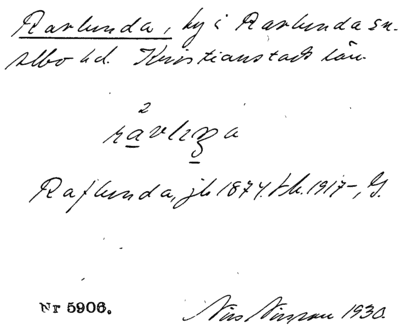 Ravlunda, by i Ravlunda sn.
Albo hd. Kristianstads län.
2
Raflunda, jb 1874. tk. 1917–, G.
Nr 5906.
Nils Nilsson 1930.